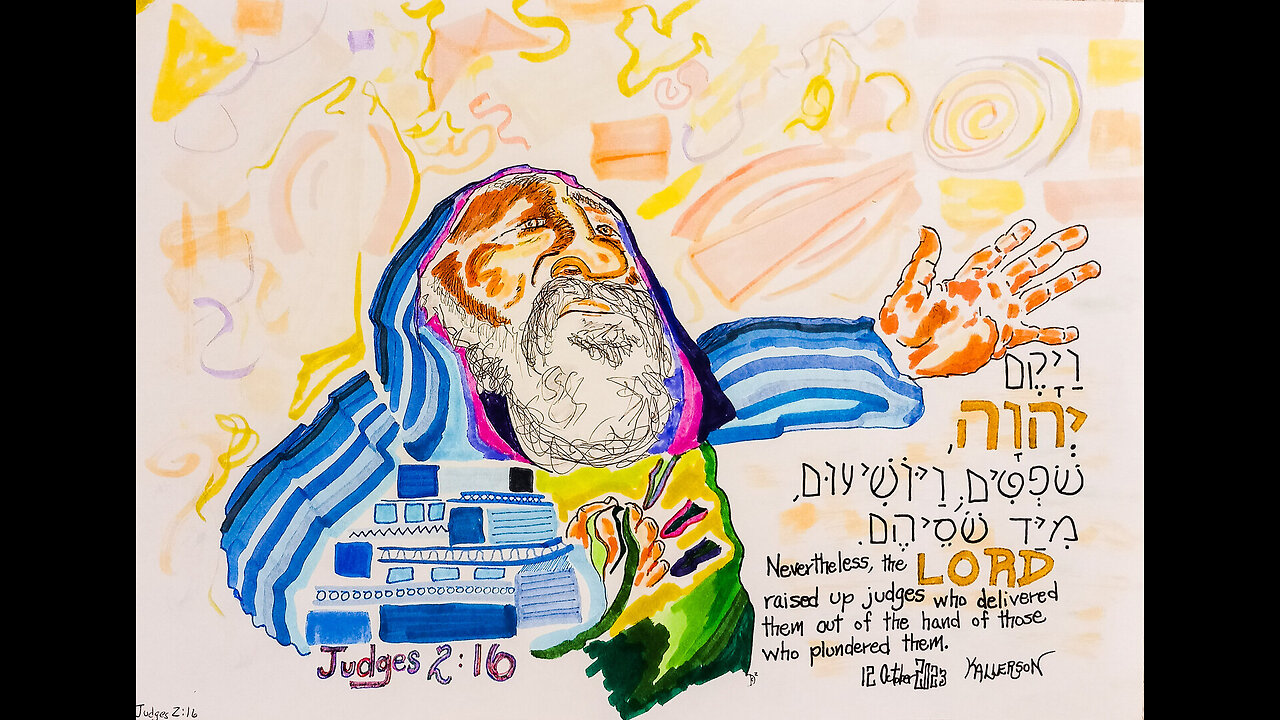 וַיָּקֶם
יְהוָה,
שֹׁפְטִים, וַיּוֹשִׁיעוּם,
מִיַּד שֹׁסֵיהֶם.
Nevertheless, the LORD
raised up judges who delivered
them out of the hand of those
who plundered them.
12 October 2023 KALLERSON
Judges 2:16
Judges 2:16